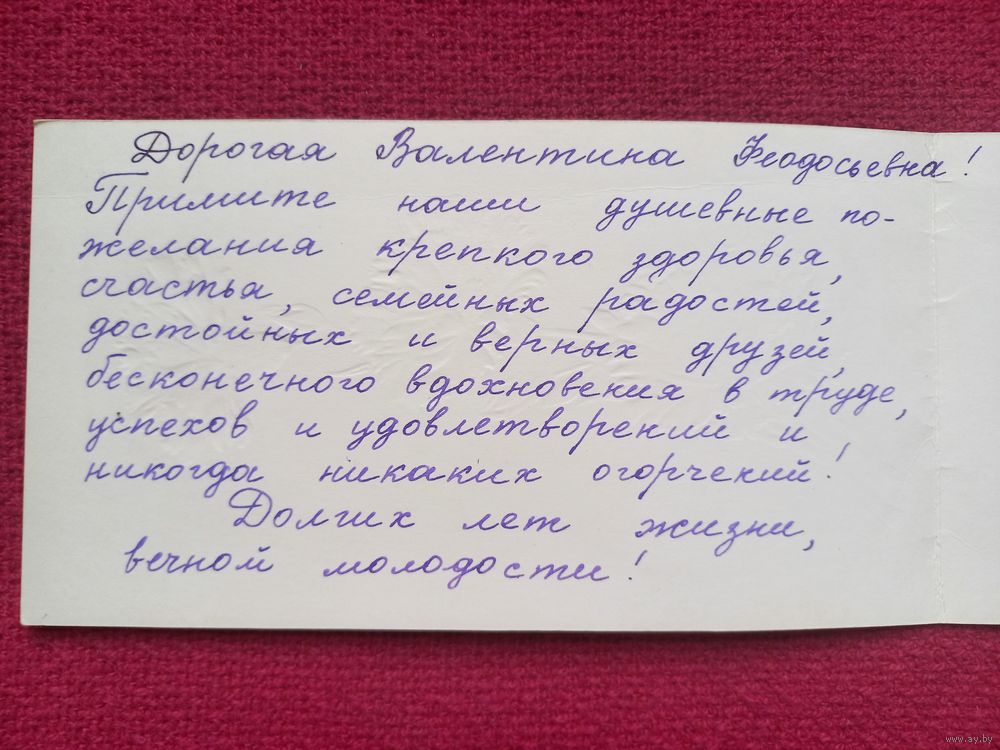 Дорогая Валентина Феодосьевна!
Примите наши душевные по-
желания крепкого здоровья,
счастья, семейных радостей,
достойных и верных друзей,
бесконечного вдохновения в труде,
успехов и удовлетворений и
никогда никаких огорчений!
Долгих лет жизни,
вечной молодости!
www.ay.by